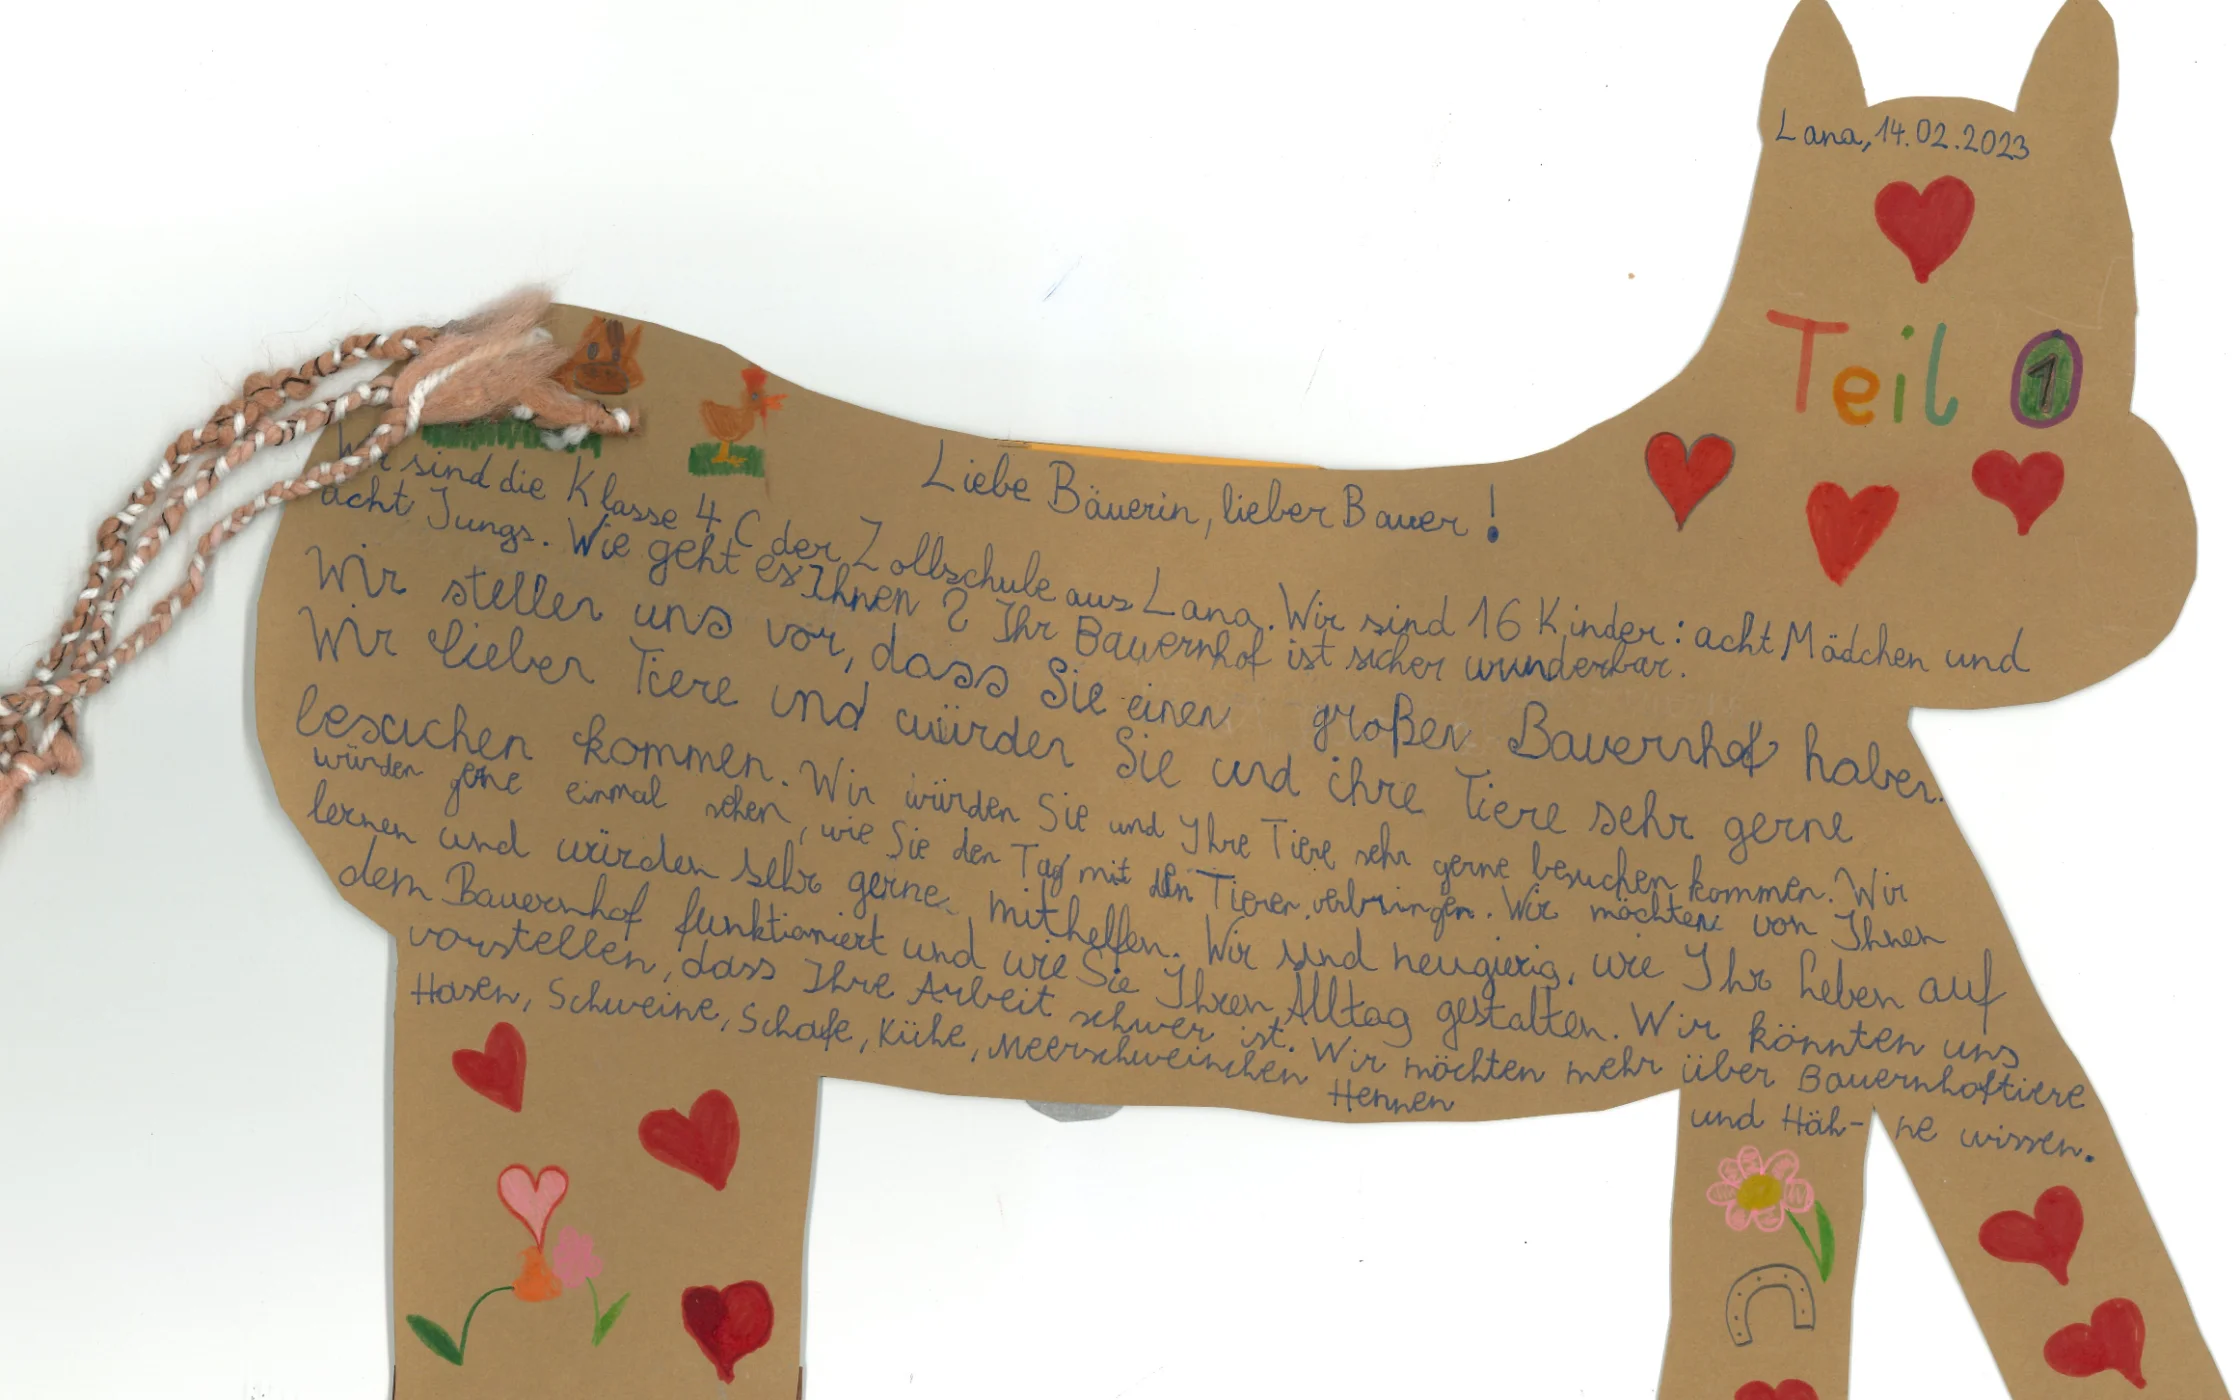 Lana, 14.02.2023
Teil 1
Liebe Bäuerin, lieber Bauer!
Wir sind die Klasse 4 C der Zollschule aus Lana. Wir sind 16 Kinder: acht Mädchen und
acht Jungs. Wie geht es Ihnen? Ihr Bauernhof ist sicher wunderbar.
Wir stellen uns vor, dass Sie einen großen Bauernhof haben.
Wir lieben Tiere und würden Sie und ihre Tiere sehr gerne
besuchen kommen. Wir würden Sie und Ihre Tiere sehr gerne besuchen kommen. Wir
würden gerne einmal sehen, wie Sie den Tag mit den Tieren verbringen. Wir möchten von Ihnen
lernen und würden sehr gerne mithelfen. Wir sind neugierig, wie Ihr Leben auf
dem Bauernhof funktioniert und wie Sie Ihren Alltag gestalten. Wir könnten uns
vorstellen, dass Ihre Arbeit schwer ist. Wir möchten mehr über Bauernhoftiere
Hasen, Schweine, Schafe, Kühe, Meerschweinchen Hennen und Häh- ne wissen.